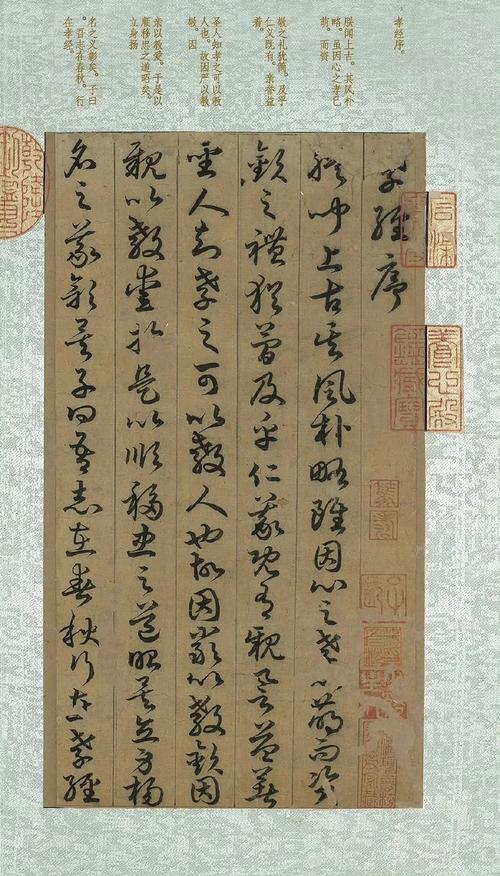 孝经序。
朕闻上古，其风朴
略。虽因心之孝已
萌。而资
敬之礼犹简。及乎
仁义既有。亲誉益
着。
圣人知孝之可以教
人也。故因严以教
敬，因
亲以教爱。于是以
顺移忠之道昭矣。
立身扬
名之义彰矣。子曰
吾志在春秋。行
在孝经。
孝經序
朕聞上古其風朴略雖因心之孝以萌而資
敬之禮猶簡及乎仁義既有親譽益著
聖人知孝之可以教人也故因嚴以教敬因
親以教愛於是以順移忠之道昭矣立身揚
名之義彰矣子曰吾志在春秋行在孝經
養心殿
鑑藏寶